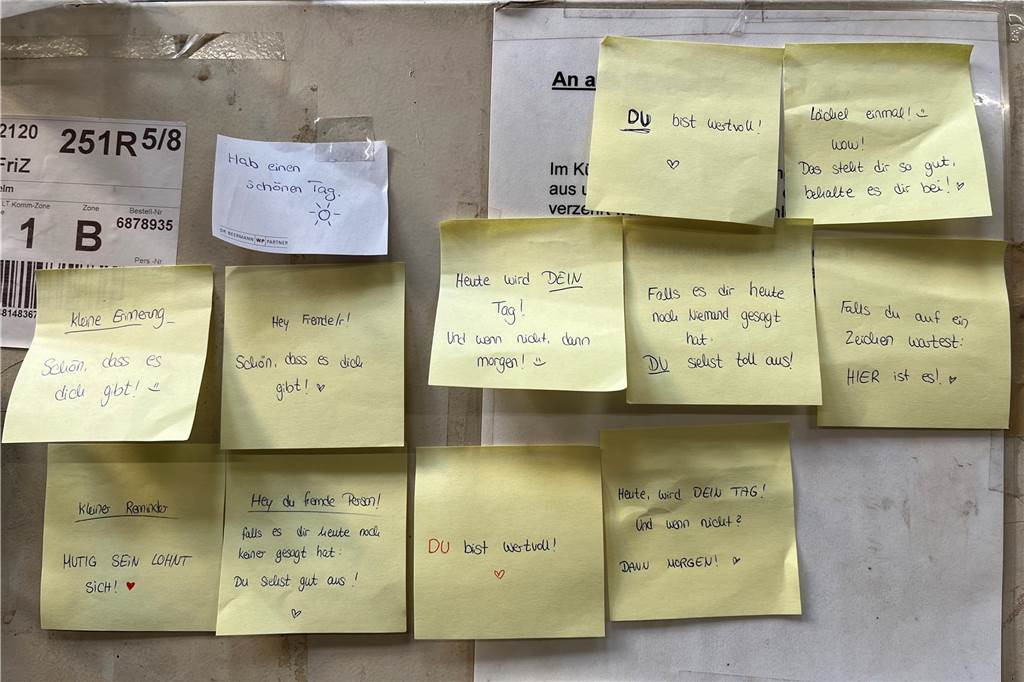 2120
251R 5/8
FriZ
elm
LT Komm-Zone
Zone
Bestell-Nr
1
B
6878935
Pers.-Nr
48148367
Hab einen
schönen Tag.
DR. BEERMANN WP PARTNER
An a
Im Kü
aus u
verzehrt
DU bist wertvoll!
♡
Lächel einmal! :)
WOW!
Das steht dir so gut,
behalte es dir bei! ♡
Kleine Erinnerung
Schön, dass es
dich gibt! :)
Hey Fremde/r!
Schön, dass es dich
gibt! ♡
Heute wird DEIN
Tag!
Und wenn nicht, dann
morgen! :)
Falls es dir heute
noch Niemand gesagt
hat:
DU siehst toll aus!
Falls du auf ein
Zeichen wartest:
HIER ist es! ♡
Kleiner Reminder
MUTIG SEIN LOHNT
SICH! ♥
Hey du fremde Person!
falls es dir heute noch
keiner gesagt hat:
Du siehst gut aus!
♡
DU bist wertvoll!
♡
Heute, wird DEIN TAG!
Und wenn nicht?
DANN MORGEN! ♡